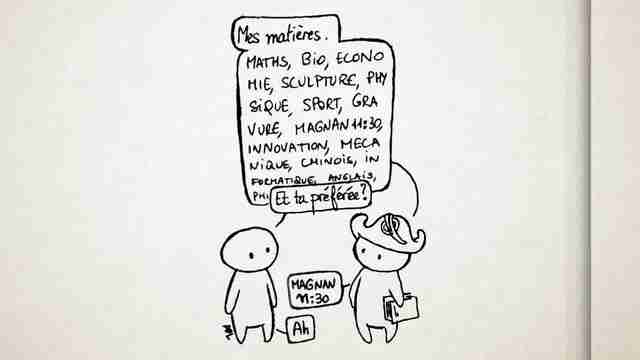 Mes matières.
MATHS, BIO, ECONO
MIE, SCULPTURE, PHY
SIQUE, SPORT, GRA
VURE, MAGNAN 11:30,
INNOVATION, MECA
NIQUE, CHINOIS, IN
FORMATIQUE, ANGLAIS,
PHI
Et ta préférée?
MAGNAN
11:30
Ah